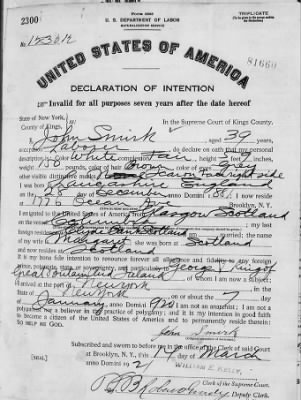 2300
Form 2203
U. S. DEPARTMENT OF LABOR
NATURALIZATION SERVICE
TRIPLICATE
No.
UNITED STATES OF AMERICA
81660
DECLARATION OF INTENTION
Invalid for all purposes seven years after the date hereof
State of New York,
County of Kings,
In the Supreme Court of Kings County.
I, John Smirk, aged 39 years,
occupation Laborer, do declare on oath that my personal
description is: Color White, complexion Fair, height 5 feet 7 inches,
weight 158 pounds, color of hair Brown, color of eyes Gray
other visible distinctive marks right side
I was born in England
on the 25 day of December, anno Domini 1881; I now reside
at 1776 Ocean Ave, Brooklyn, N. Y.
I emigrated to the United States of America from Glasgow Scotland
on the vessel Columbia; my last
foreign residence was Scotland; I am married; the name
of my wife is Margaret; she was born at Scotland
and now resides at Scotland
It is my bona fide intention to renounce forever all allegiance and fidelity to any foreign
prince, potentate, state, or sovereignty, and particularly to George V King of
Great Britain & Ireland, of whom I am now a subject;
I arrived at the port of New York, in the
State of New York, on or about the 7 day
of January, anno Domini 1921; I am not an anarchist; I am not a
polygamist nor a believer in the practice of polygamy; and it is my intention in good faith
to become a citizen of the United States of America and to permanently reside therein:
SO HELP ME GOD.
John Smirk
Subscribed and sworn to before me in the office of the Clerk of said Court
at Brooklyn, N. Y., this 14 day of March
anno Domini 1921
[SEAL]
WILLIAM E. KELLY,
Clerk of the Supreme Court.
By
Deputy Clerk.